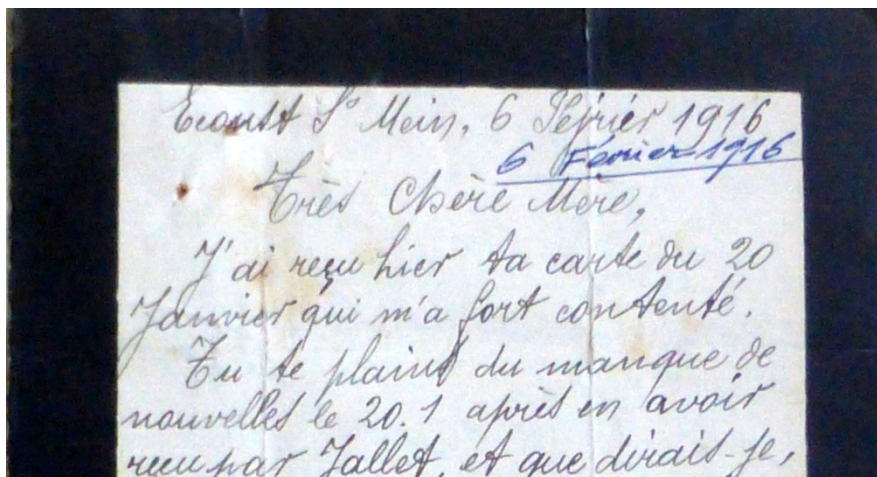 Ecoust St Mein, 6 Février 1916
6 Février 1916
Très Chère Mère,
J'ai reçu hier ta carte du 20
Janvier qui m'a fort contenté.
Tu te plains du manque de
nouvelles le 20.1 après en avoir
reçu par Jallet, et que dirais-je,